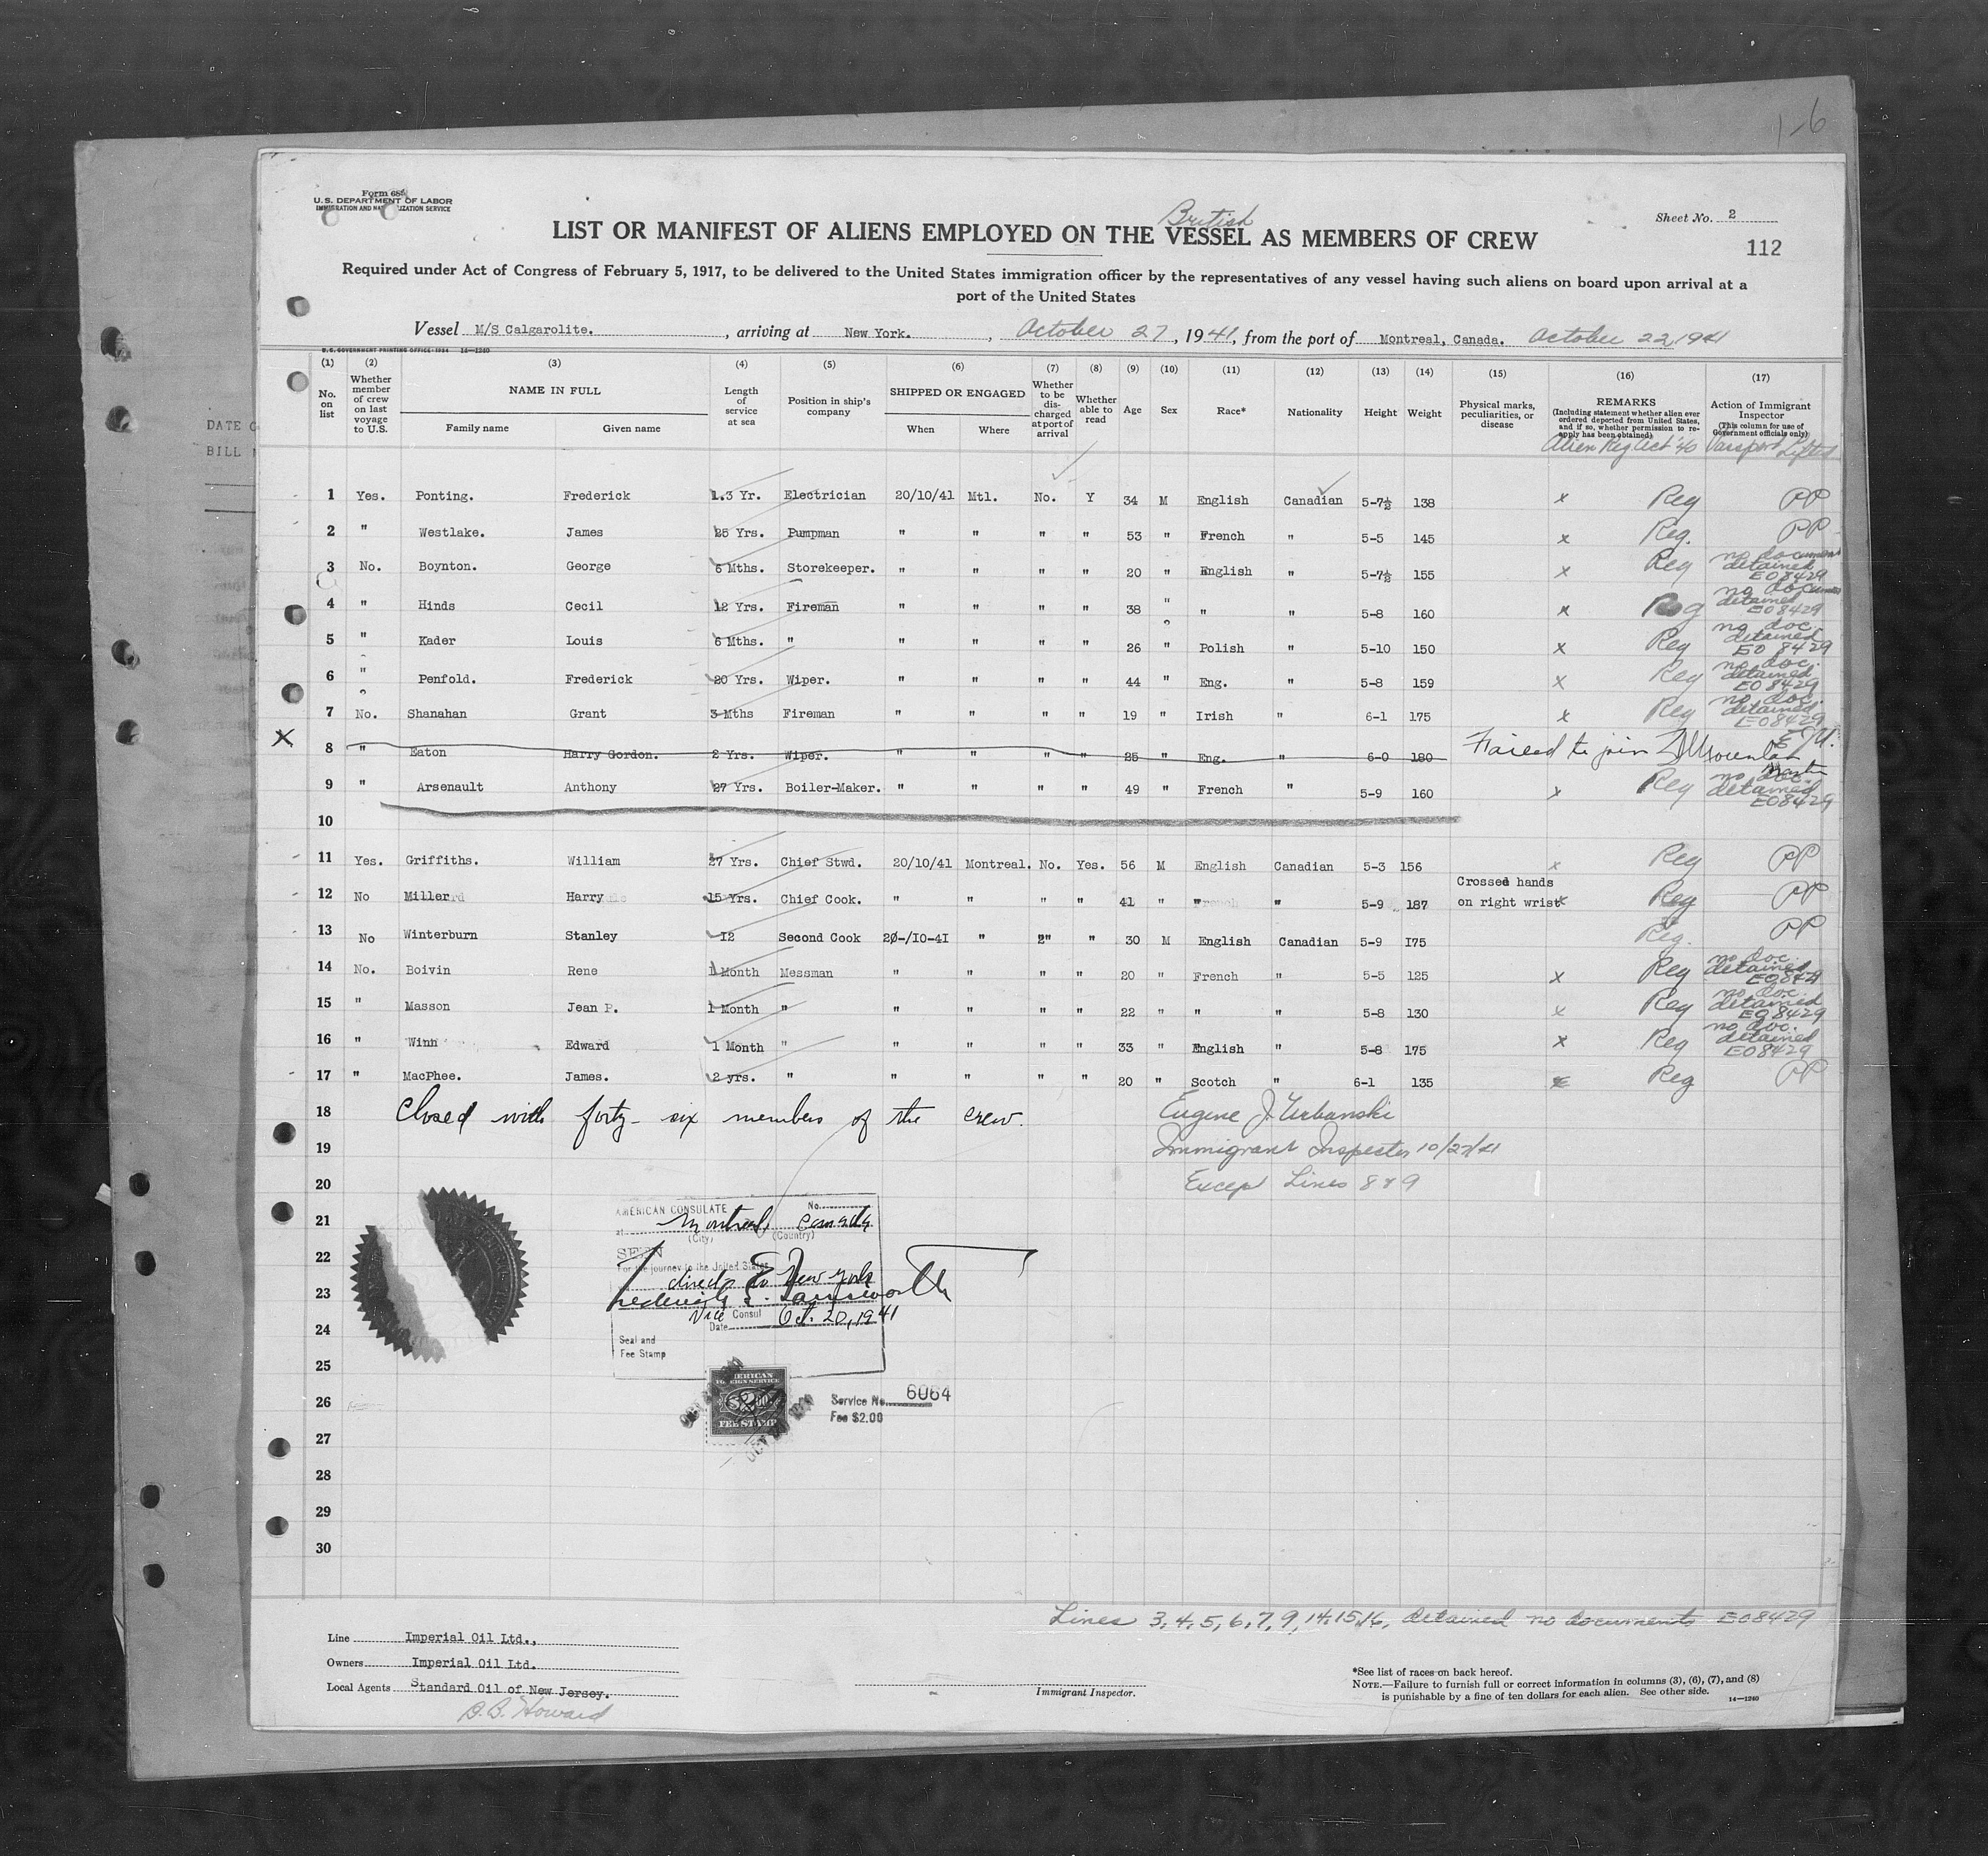 1-6
Form 689
U.S. DEPARTMENT OF LABOR
IMMIGRATION AND NATURALIZATION SERVICE
Sheet No. 2
British
LIST OR MANIFEST OF ALIENS EMPLOYED ON THE VESSEL AS MEMBERS OF CREW
112
Required under Act of Congress of February 5, 1917, to be delivered to the United States immigration officer by the representatives of any vessel having such aliens on board upon arrival at a
port of the United States
Vessel M/S Calgarolite. , arriving at New York. , October 27, 1941, from the port of Montreal, Canada. October 22, 1941
U.S. GOVERNMENT PRINTING OFFICE: 1934 14—1240
(1) (2) (3) (4) (5) (6) (7) (8) (9) (10) (11) (12) (13) (14) (15) (16) (17)
No. on list
Whether member of crew on last voyage to U.S.
NAME IN FULL
Family name
Given name
Length of service at sea
Position in ship's company
SHIPPED OR ENGAGED
When
Where
Whether to be discharged at port of arrival
Whether able to read
Age
Sex
Race*
Nationality
Height
Weight
Physical marks, peculiarities, or disease
REMARKS
(Including statement whether alien ever ordered deported from United States, and if so, whether permission to reapply has been obtained)
Alien Reg Act '40
Action of Immigrant Inspector
(This column for use of Government officials only)
Passport Lifted
DATE
BILL
1 Yes. Ponting. Frederick 1.3 Yr. Electrician 20/10/41 Mtl. No. Y 34 M English Canadian 5-7½ 138 x Reg PP
2 " Westlake. James 25 Yrs. Pumpman " " " " 53 " French " 5-5 145 x Reg. PP
3 No. Boynton. George 6 Mths. Storekeeper. " " " " 20 " English " 5-7½ 155 x Reg no document detained EO 8429
4 " Hinds Cecil 12 Yrs. Fireman " " " " 38 " " " 5-8 160 x Reg no documents detained EO 8429
5 " Kader Louis 6 Mths. " " " " " 26 " Polish " 5-10 150 x Reg no doc. detained EO 8429
6 " Penfold. Frederick 20 Yrs. Wiper. " " " " 44 " Eng. " 5-8 159 x Reg no doc. detained EO 8429
7 No. Shanahan Grant 3 Mths Fireman " " " " 19 " Irish " 6-1 175 x Reg no doc. detained EO 8429
X 8 " Eaton Harry Gordon. 2 Yrs. Wiper. " " " " 25 " Eng. " 6-0 180 Failed to join Master
9 " Arsenault Anthony 27 Yrs. Boiler-Maker. " " " " 49 " French " 5-9 160 x Reg no doc. detained EO 8429
10
11 Yes. Griffiths. William 37 Yrs. Chief Stwd. 20/10/41 Montreal. No. Yes. 56 M English Canadian 5-3 156 x Reg PP
12 No Miller Harry 15 Yrs. Chief Cook. " " " " 41 " " " 5-9 187 Crossed hands on right wrist x Reg PP
13 No Winterburn Stanley 12 Second Cook 20-/10-41 " " " 30 M English Canadian 5-9 175 Reg. PP
14 No. Boivin Rene 1 Month Messman " " " " 20 " French " 5-5 125 x Reg no doc. detained EO 8429
15 " Masson Jean P. 1 Month " " " " " 22 " " " 5-8 130 x Reg no doc. detained EO 8429
16 " Winn Edward 1 Month " " " " " 33 " English " 5-8 175 x Reg no doc. detained EO 8429
17 " MacPhee. James. 2 yrs. " " " " " 20 " Scotch " 6-1 135 x Reg PP
18 Closed with forty-six members of the crew. Eugene J. Urbanski
19 Immigrant Inspector 10/27/41
20 Except Lines 8 & 9
21
22
23
24
25
26
27
28
29
30
AMERICAN CONSULATE No.
at Montreal Canada
(City) (Country)
SEEN
For the journey to the United States
direct to New York
Frederick E. Farnsworth
Vice Consul
Date Oct. 20, 1941
Seal and
Fee Stamp
AMERICAN
FOREIGN SERVICE
$2.00
FEE STAMP
Service No. 6064
Fee $2.00
Lines 3, 4, 5, 6, 7, 9, 14, 15, 16, detained no documents EO 8429
Line Imperial Oil Ltd.,
Owners Imperial Oil Ltd.
Local Agents Standard Oil of New Jersey.
B.B. Howard
Immigrant Inspector.
*See list of races on back hereof.
NOTE.—Failure to furnish full or correct information in columns (3), (6), (7), and (8)
is punishable by a fine of ten dollars for each alien. See other side.
14—1240